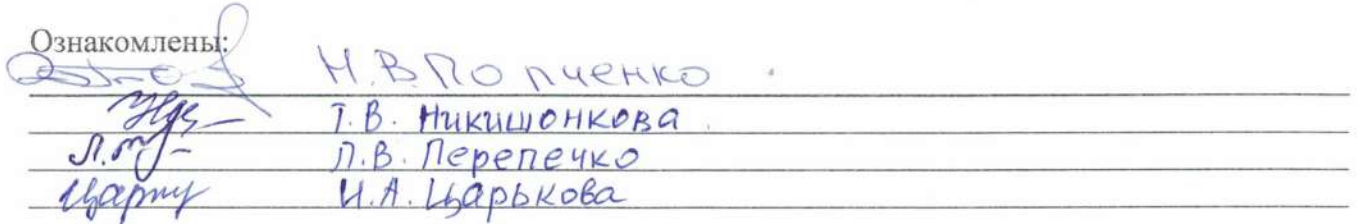 Ознакомлены:
Н.В. Попченко
Т.В. Никишонкова
Л.В. Перепечко
И.А. Царькова